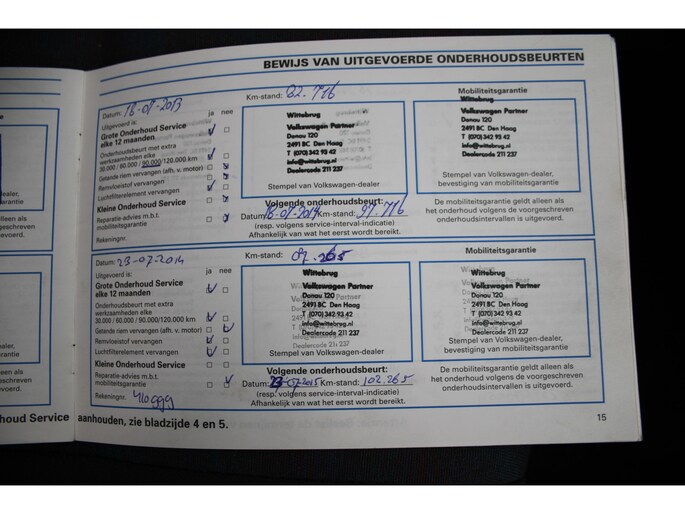 BEWIJS VAN UITGEVOERDE ONDERHOUDSBEURTEN
Datum: 18-07-2013
Uitgevoerd is: ja nee
Grote Onderhoud Service
elke 12 maanden
Onderhoudsbeurt met extra
werkzaamheden elke
30.000 / 60.000 / 90.000/120.000 km
Getande riem vervangen (afh. v. motor)
Remvloeistof vervangen
Luchtfilterelement vervangen
Kleine Onderhoud Service
Reparatie-advies m.b.t.
mobiliteitsgarantie
Rekeningnr.
Km-stand: 82.716
Wittebrug
Volkswagen Partner
Donau 120
2491 BC Den Haag
T (070) 342 93 42
info@wittebrug.nl
Dealercode 211 237
Stempel van Volkswagen-dealer
Volgende onderhoudsbeurt:
Datum: 18-07-2014 Km-stand: 97.716
(resp. volgens service-interval-indicatie)
Afhankelijk van wat het eerst wordt bereikt.
Mobiliteitsgarantie
Wittebrug
Volkswagen Partner
Donau 120
2491 BC Den Haag
T (070) 342 93 42
info@wittebrug.nl
Dealercode 211 237
Stempel van Volkswagen-dealer,
bevestiging van mobiliteitsgarantie
De mobiliteitsgarantie geldt alleen als
het onderhoud volgens de voorgeschreven
onderhoudsintervallen is uitgevoerd.
Datum: 23-07-2014
Uitgevoerd is: ja nee
Grote Onderhoud Service
elke 12 maanden
Onderhoudsbeurt met extra
werkzaamheden elke
30.000 / 60.000 / 90.000/120.000 km
Getande riem vervangen (afh. v. motor)
Remvloeistof vervangen
Luchtfilterelement vervangen
Kleine Onderhoud Service
Reparatie-advies m.b.t.
mobiliteitsgarantie
Rekeningnr.
Km-stand: 87.265
Wittebrug
Volkswagen Partner
Donau 120
2491 BC Den Haag
T (070) 342 93 42
info@wittebrug.nl
Dealercode 211 237
Stempel van Volkswagen-dealer,
Volgende onderhoudsbeurt:
Datum: 23-07-2015 Km-stand: 102.265
(resp. volgens service-interval-indicatie)
Afhankelijk van wat het eerst wordt bereikt.
Mobiliteitsgarantie
Wittebrug
Volkswagen Partner
Donau 120
2491 BC Den Haag
T (070) 342 93 42
info@wittebrug.nl
Dealercode 211 237
Stempel van Volkswagen-dealer,
bevestiging van mobiliteitsgarantie
De mobiliteitsgarantie geldt alleen als
het onderhoud volgens de voorgeschreven
onderhoudsintervallen is uitgevoerd.
aanhouden, zie bladzijde 4 en 5.
15
dealer,
garantie
alleen als
geschreven
gevoerd.
dealer,
garantie
alleen als
geschreven
gevoerd.
houd Service